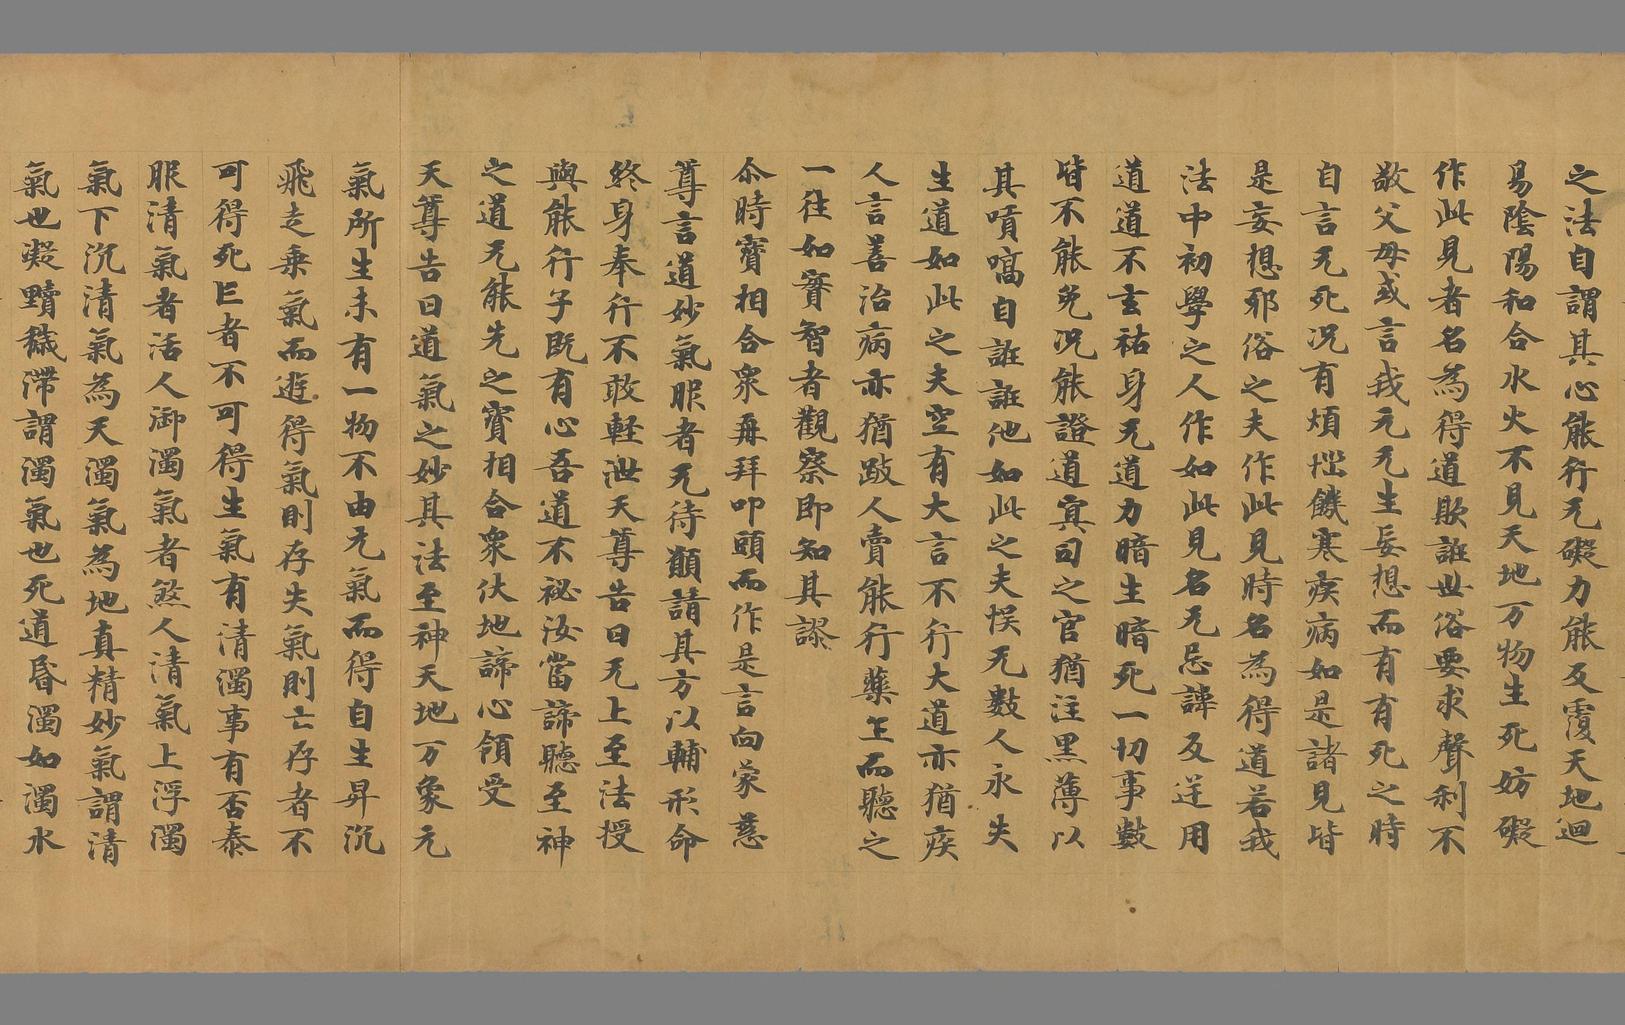 之法自謂其心能行无礙力能反覆天地迴
易陰陽和合水火不見天地万物生死妨礙
作此見者名為得道欺誑世俗要求聲利不
敬父母或言我无无生妄想而有有死之時
自言无死況有煩惱饑寒疾病如是諸見皆
是妄想邪俗之夫作此見時名為得道若我
法中初學之人作如此見名无忌諱及逆用
道道不玄祐身无道力暗生暗死一切事數
皆不能免況能證道冥司之官猶注黑薄以
其嗔嗃自誑誑他如此之夫悮无數人永失
生道如此之夫空有大言不行大道亦猶疾
人言善治病亦猶跛人賣能行藥𠀉而聽之
一往如實智者觀察即知其謬
尒時寶相合衆再拜叩頭而作是言向蒙慈
尊言道妙氣服者无待顓請其方以輔形命
終身奉行不敢輕泄天尊告曰无上至法授
與能行子既有心吾道不祕汝當諦聽至神
之道无能先之寶相合衆伏地諦心領受
天尊告曰道氣之妙其法至神天地万象元
氣所生未有一物不由元氣而得自生昇沉
飛走乗氣而遊得氣則存失氣則亡存者不
可得死亡者不可得生氣有清濁事有否泰
服清氣者活人御濁氣者煞人清氣上浮濁
氣下沉清氣為天濁氣為地真精妙氣謂清
氣也凝黷穢滯謂濁氣也死道昏濁如濁水